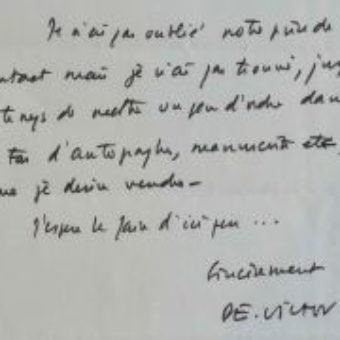 Je n'ai pas oublié notre prise de
ntact mais je n'ai pas trouvé, jus
temps de mettre un peu d'ordre dans
tas d'autographes, manuscrits etc,
ue je désire vendre -
J'espère le faire d'ici peu ...
Sincèrement